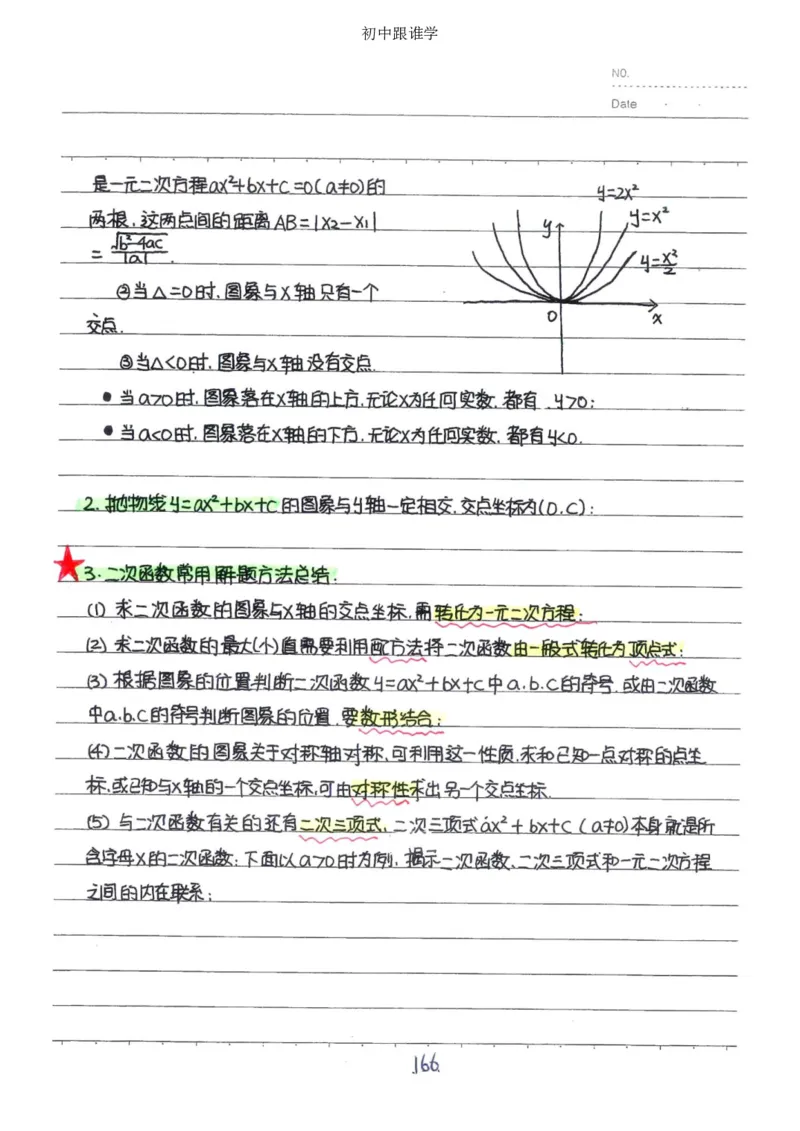 初中跟谁学
NO.
Date
是一元二次方程ax²+bx+c=0(a≠0)的
两根,这两点间的距离AB=|x₂-x₁|
=√(b²-4ac)/|a|.
②当△=0时,图象与x轴只有一个
交点.
③当△<0时,图象与x轴没有交点.
y=2x²
y=x²
y=x²/2
y
O
x
●当a>0时,图象落在x轴的上方,无论x为任何实数,都有 y>0;
●当a<0时,图象落在x轴的下方,无论x为任何实数,都有y<0.
2.抛物线y=ax²+bx+c的图象与y轴一定相交,交点坐标为(0,c);
3.二次函数常用解题方法总结:
(1) 求二次函数的图象与x轴的交点坐标,需转化为一元二次方程;
(2) 求二次函数的最大(小)值需要利用配方法将二次函数由一般式转化为顶点式;
(3) 根据图象的位置判断二次函数y=ax²+bx+c中a.b.c的符号,或由二次函数
中a.b.c的符号判断图象的位置,要数形结合;
(4)二次函数的图象关于对称轴对称,可利用这一性质,求和已知一点对称的点坐
标,或已知与x轴的一个交点坐标,可由对称性求出另一个交点坐标.
(5) 与二次函数有关的还有二次三项式,二次三项式ax²+bx+c(a≠0)本身就是所
含字母x的二次函数;下面以a>0时为例,揭示二次函数、二次三项式和一元二次方程
之间的内在联系;
166